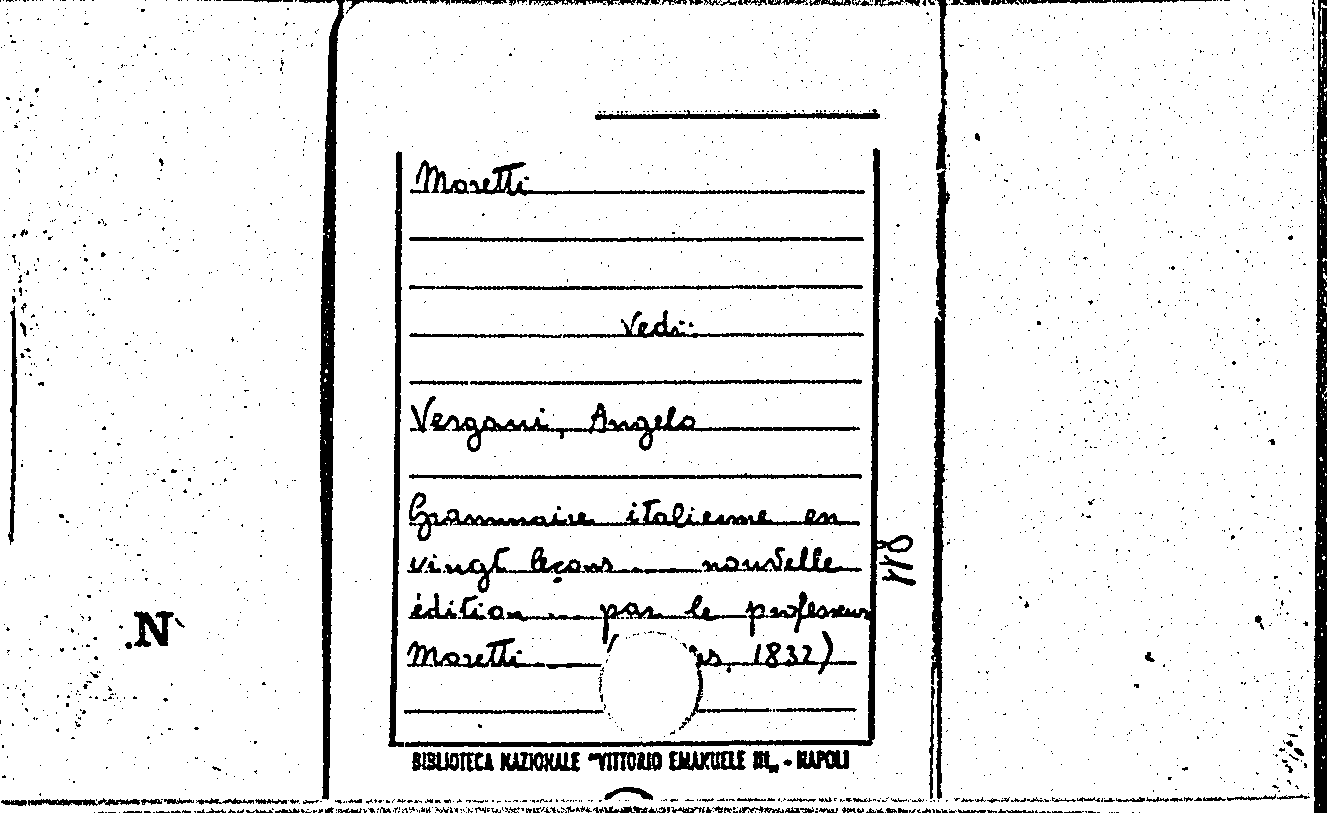 Moretti
Vedi:
Vergani, Angelo
Grammaire italienne en
vingt leçons ... nouvelle
édition ... par le professeur
Moretti ... ( 1832)
BIBLIOTECA NAZIONALE "VITTORIO EMANUELE III„ - NAPOLI
.N